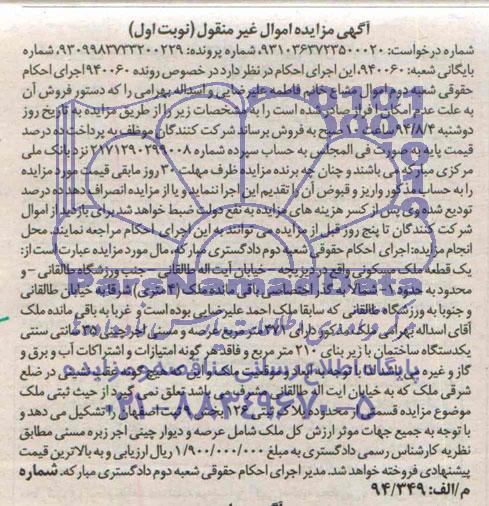 آگهی مزایده اموال غیر منقول (نوبت اول)
شماره درخواست: ۹۳۱۰۳۶۳۷۲۳۵۰۰۰۲۰، شماره پرونده: ۹۳۰۹۹۸۳۷۳۳۲۰۰۲۲۹، شماره
بایگانی شعبه: ۹۴۰۰۶۰، این اجرای احکام در نظر دارد در خصوص رونده ۹۴۰۰۶۰ اجرای احکام
حقوقی شعبه دوم اموال مشاع خانم فاطمه علیرضایی و اسداله بهرامی را که دستور فروش آن
به علت عدم امکان افراز صادر شده است را به مشخصات زیر را از طریق مزایده به تاریخ روز
دوشنبه ۹۴/۸/۴ ساعت ۱۰ صبح به فروش برساند شرکت کنندگان موظف به پرداخت ده درصد
قیمت پایه به صورت فی المجلس به حساب سپرده شماره ۲۱۷۱۲۹۰۲۹۹۰۰۸ نزد بانک ملی
مرکزی مبارکه می باشند و چنان چه برنده مزایده ظرف مهلت ۳۰ روز مابقی قیمت مورد مزایده
را به حساب مذکور واریز و قبوض آن را تقدیم این اجرا ننماید و یا از مزایده انصراف دهد ده درصد
تودیع شده وی پس از کسر هزینه های مزایده به نفع دولت ضبط خواهد شد. برای بازدید از اموال
شرکت کنندگان تا پنج روز قبل از مزایده می توانند به این اجرای احکام مراجعه نمایند. محل
انجام مزایده: اجرای احکام حقوقی شعبه دوم دادگستری مبارکه. مال مورد مزایده عبارت است از:
یک قطعه ملک مسکونی واقع در دیزیچه - خیابان آیت اله طالقانی - جنب ورزشگاه طالقانی - و
محدود به حدود ۱- شمالا به گذر اختصاصی باقی مانده ملک (۴ متری) شرقا به خیابان طالقانی
و جنوبا به ورزشگاه طالقانی که سابقا ملک احمد علیرضایی بوده است و غربا به باقی مانده ملک
آقای اسداله بهرامی ملک مذکور دارای ۳۷۱ متر مربع عرصه و دیوار چینی ۳۵ سانتی سنتی
یکدستگاه ساختمان با زیر بنای ۲۱۰ متر مربع و فاقد هر گونه امتیازات و اشتراکات آب و برق و
گاز و غیره می باشد با توجه به ابعاد و موقعیت ملک و این که هر گونه عقب نشینی در ضلع
شرقی ملک که به خیابان آیت اله طالقانی مشرف می باشد تعلق نمی گیرد از حیث ثبتی ملک
موضوع مزایده قسمتی از محدوده پلاک ثبتی ۱۲۶ بخش ۹ ثبت اصفهان را تشکیل می دهد و
با توجه به جمیع جهات موثر ارزش کل ملک شامل عرصه و دیوار چینی آجر زبره مسنی مطابق
نظریه کارشناس رسمی دادگستری به مبلغ ۱/۹۰۰/۰۰۰/۰۰۰ ریال ارزیابی و به بالاترین قیمت
پیشنهادی فروخته خواهد شد. مدیر اجرای احکام حقوقی شعبه دوم دادگستری مبارکه. شماره
م/الف: ۹۴/۳۴۹
پایگاه اطلاع رسانی مناقصه و مزایده
۰۲۱-۸۸۳۴۹۶۷۰-۵